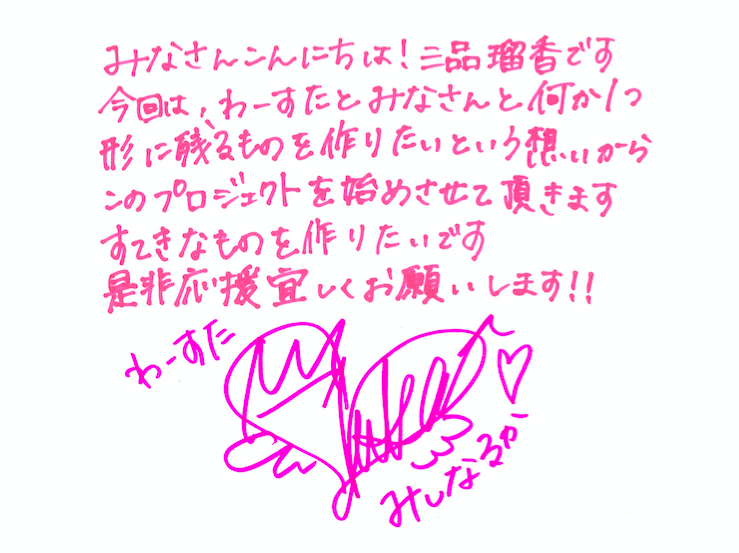 みなさんこんにちは！三品瑠香です
今回は、わーすたとみなさんと何か1つ
形に残るものを作りたいという想いから
このプロジェクトを始めさせて頂きます
すてきなものを作りたいです
是非応援宜しくお願いします!!
わーすた
みしなるか